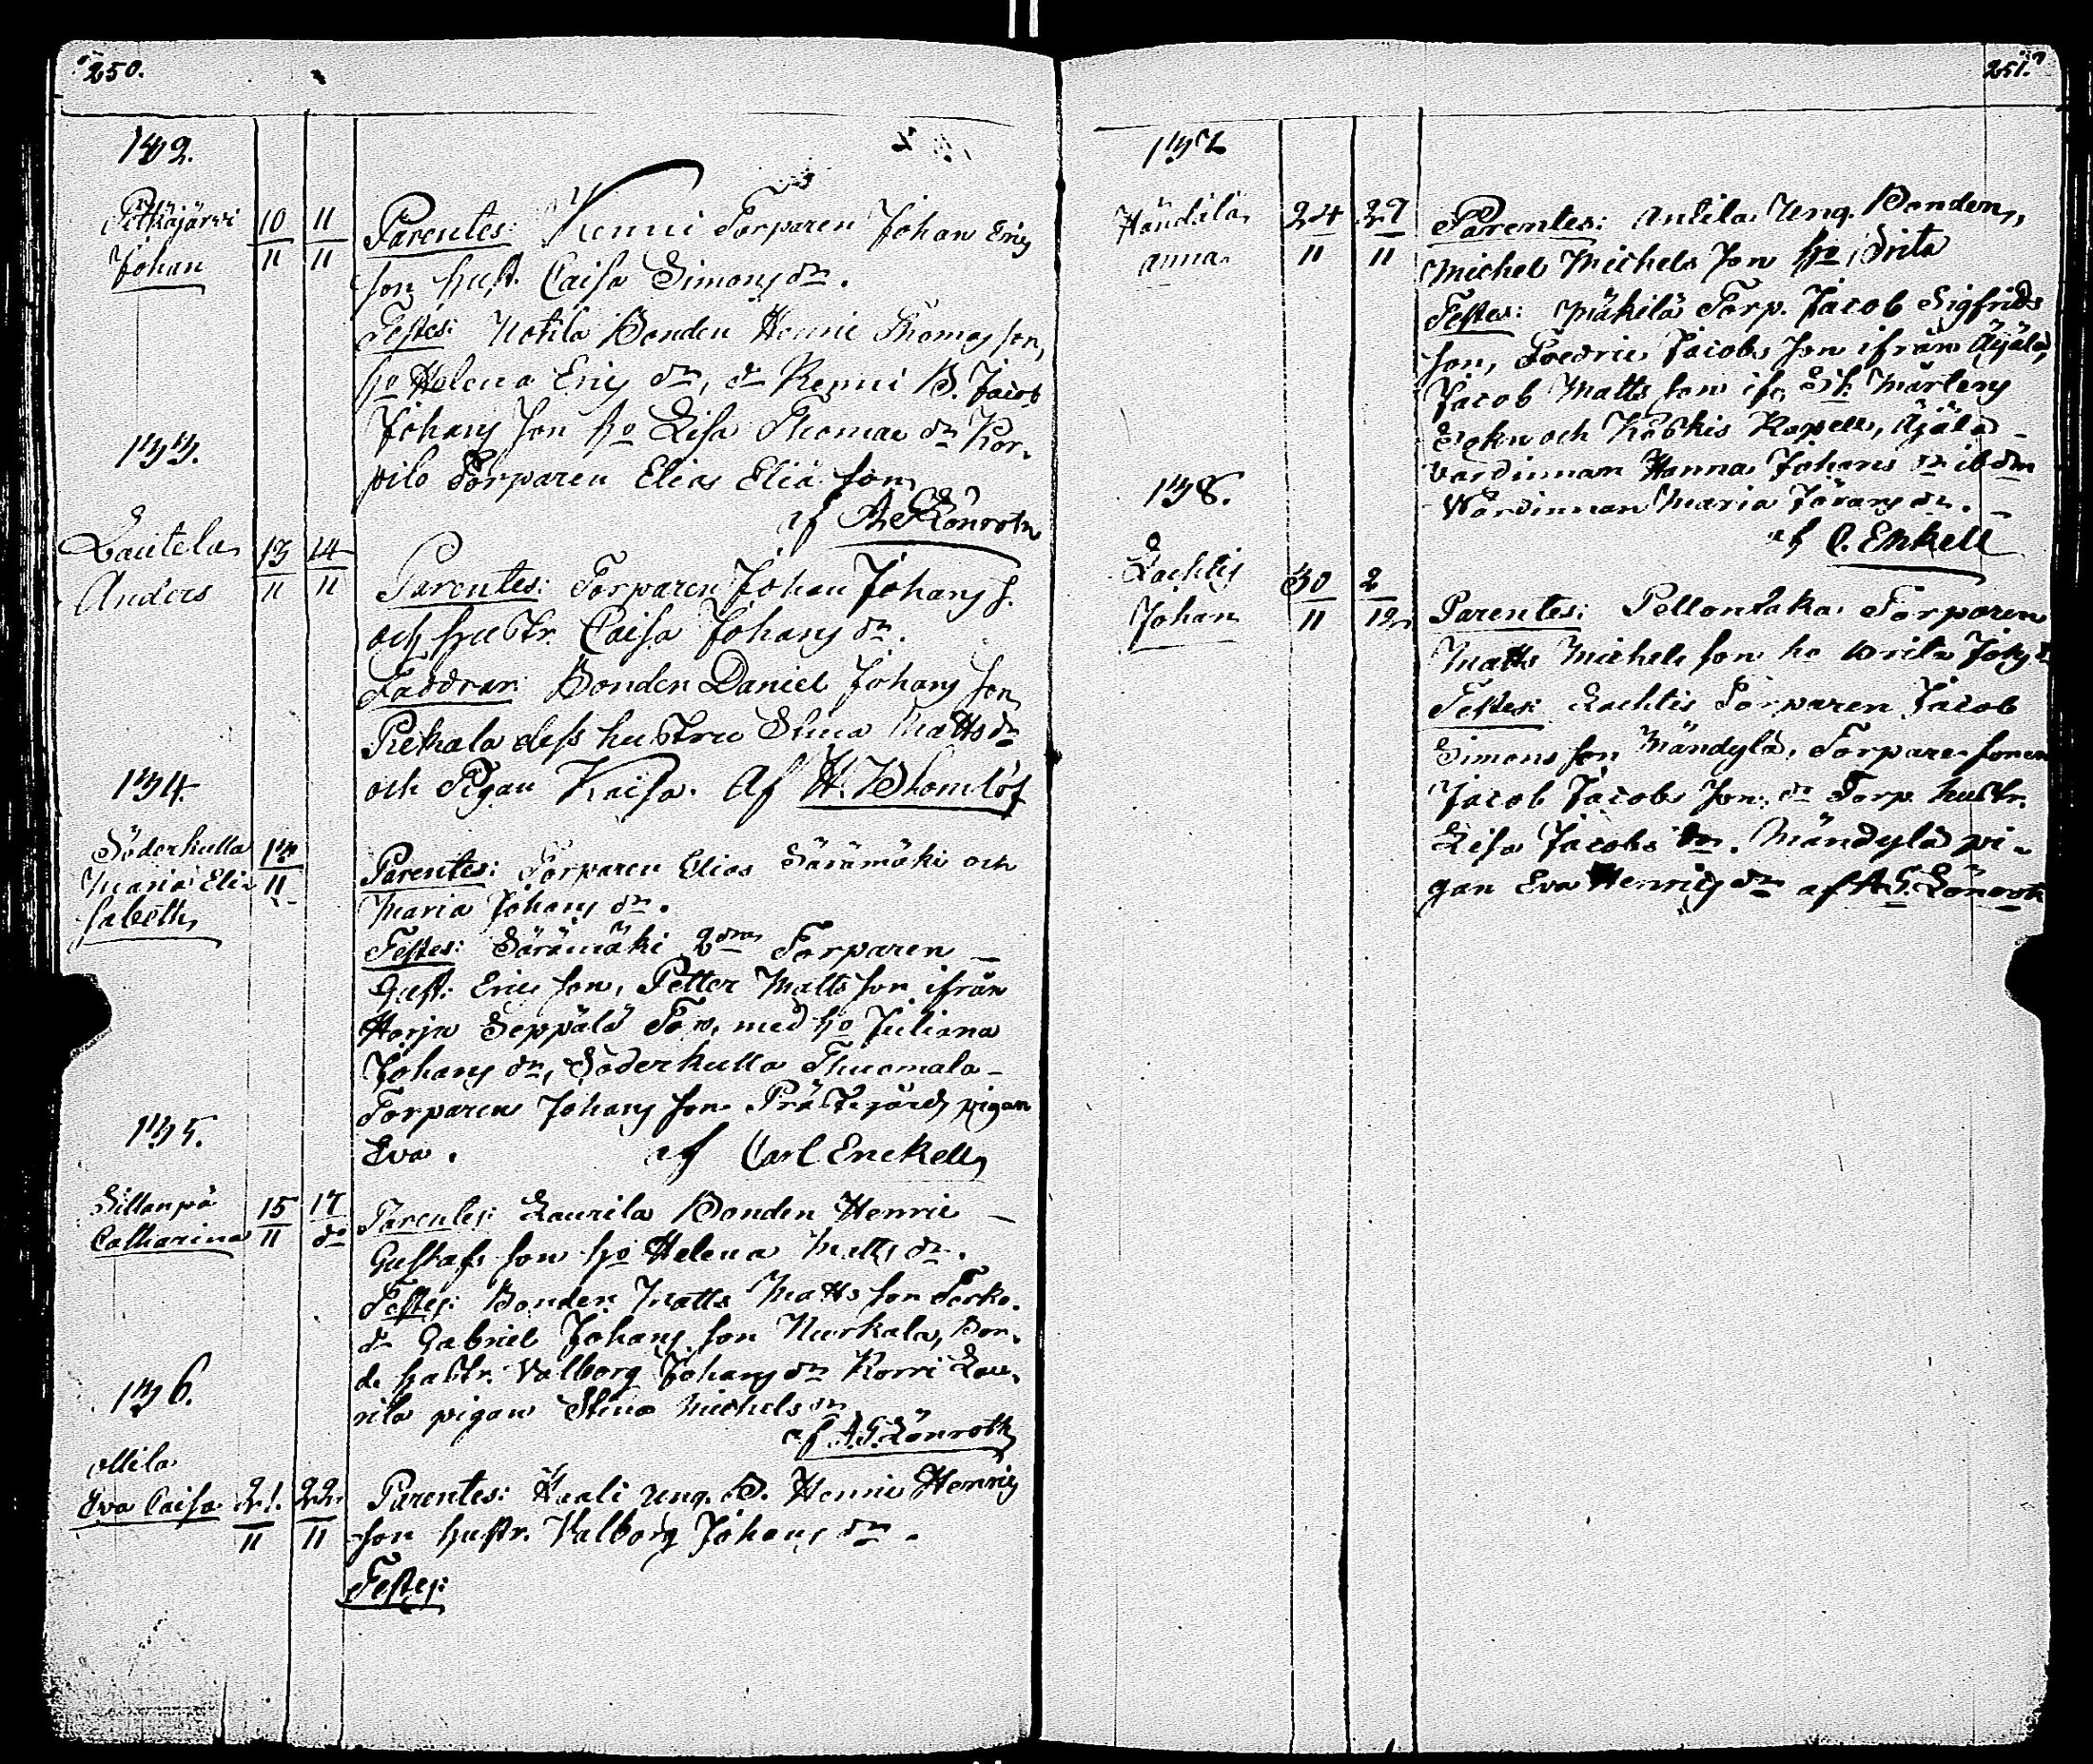 250.
132.
Pitkäjärvi
Johan
10
11
11
11
Parentes: Kenni Torparen Johan Erics
son hust. Caisa Simons dr.
Testes: Notila Bonden Henric Thomas son,
ho Helena Erics dr, dr Kenni B. Jacob
Johans son ho Lisa Thomae dr Kor-
pilo Torparen Elias Eliä son
af A. G. Lönroth
133.
Lautela
Anders
13
14
11
11
Parentes: Torparen Johan Johans s.
och hustr. Caisa Johans dr.
Faddrar: Bonden Daniel Johans son
Pekala dess hustru Stina Matts dr
och Pigan Kaisa. Af H. Blomlöf
134.
Söderkulla
Maria Eli-
sabeth
13
11
Parentes: Torparen Elias Särämäki och
Maria Johans dr.
Testes: Särämäki Torparen
Gust: Erics son, Petter Matts son ifrån
Harju Seppälä Torp. med ho Juliana
Johans dr, Söderkulla Thuomala
Torparens Johans son Prästgårds pigan
Eva. af Carl Enckell
135.
Sillanpä
Catharina
15
17
11
do
Parentes: Laurila Bonden Henric
Gustafs son ho Helena Matts dr.
Testes: Bonden Matts Matts son Torko.
dr Gabriel Johans son Nurkala, Bon-
de hustr. Valborg Johans dr Korri Lau-
rila pigan Stina Michels dr
af A. G. Lönroth
136.
Ollila
Eva Caisa
21.
22
11
11
Parentes: Haali ung. B. Henric Henrics
son hustr. Valborg Johans dr.
Testes:
251.
137
Händälä
Anna
24
27
11
11
Parentes: Antila Ung. Bonden,
Michel Michels son ho Brita
Testes: Mäkilä Torp. Jacob Sigfrids
son, Fredric Jacobs son ifrån Äijälä,
Jacob Matts son ifr. St. Mårtens
Sokn och Koskis Kapell, Äijälä
värdinnan Hanna Johans dr ibdm
Wärdinnan Maria Görans dr.
af C. Enkell
138.
Lachtis
Johan
30
2
11
12
Parentes: Pellontaka Torparen
Matts Michels son ho Brita Johs d
Testes: Lachtis Torparen Jacob
Simons son Mändylä, Torpare sonen
Jacob Jacobs son, dr Torp. hustr.
Lisa Jacobs dr. Mändylä pi-
gan Eva Henrics dr af A. G. Lönroth